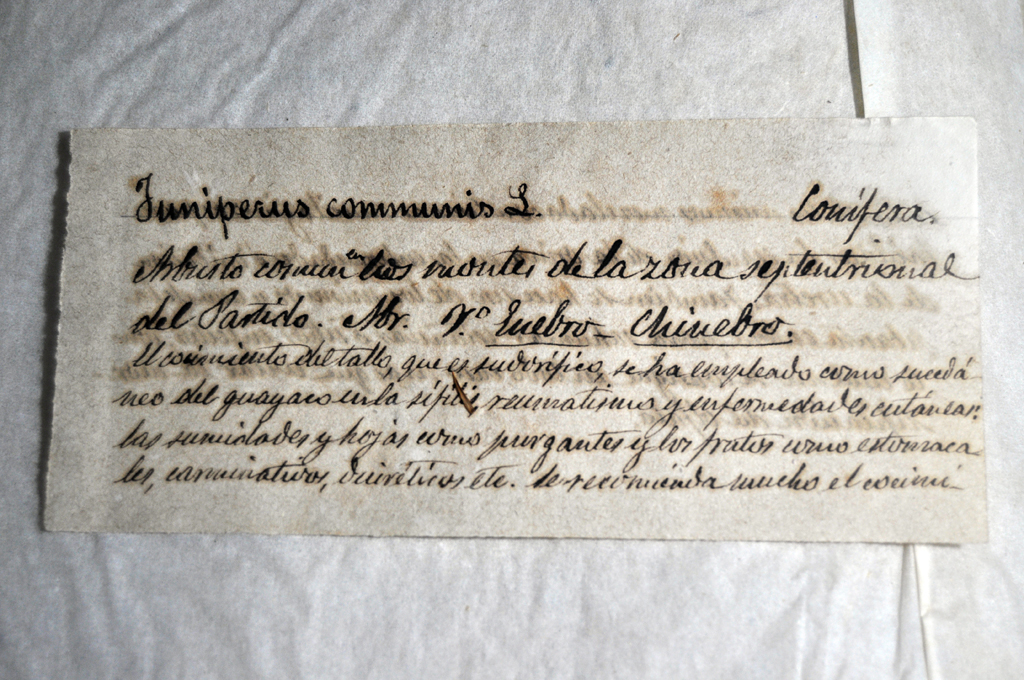 Juniperus communis L. Conífera.
Arbusto comun en los montes de la zona septentrional
del Partido. Abr. V.º Enebro - Chinebro.
El cocimiento del tallo, que es sudorífico, se ha empleado como sucedá-
neo del guayaco en la sífilis, reumatismo y enfermedades cutáneas:
las sumidades y hojas como purgantes y los frutos como estomaca-
les, carminativos, diuréticos etc. Se recomienda mucho el cocimi-